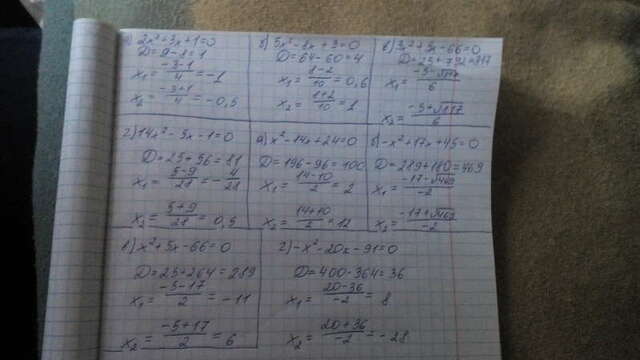 а) 2x²+3x+1=0
D=9-8=1
x₁ = (-3-1)/4 = -1
x₂ = (-3+1)/4 = -0,5
б) 5x²-8x+3=0
D=64-60=4
x₁ = (8-2)/10 = 0,6
x₂ = (8+2)/10 = 1
в) 3x²+5x-66=0
D=25+792=817
x₁ = (-5-√817)/6
x₂ = (-5+√817)/6
г) 14x²-5x-1=0
D=25+56=81
x₁ = (5-9)/28 = -4/28
x₂ = (5+9)/28 = 0,5
а) x²-14x+24=0
D=196-96=100
x₁ = (14-10)/2 = 2
x₂ = (14+10)/2 = 12
б) -x²+17x+45=0
D=289+180=469
x₁ = (-17-√469)/-2
x₂ = (-17+√469)/-2
в) x²+5x-66=0
D=25+264=289
x₁ = (-5-17)/2 = -11
x₂ = (-5+17)/2 = 6
г) -x²-20x-91=0
D=400-364=36
x₁ = (20-36)/-2 = 8
x₂ = (20+36)/-2 = -28